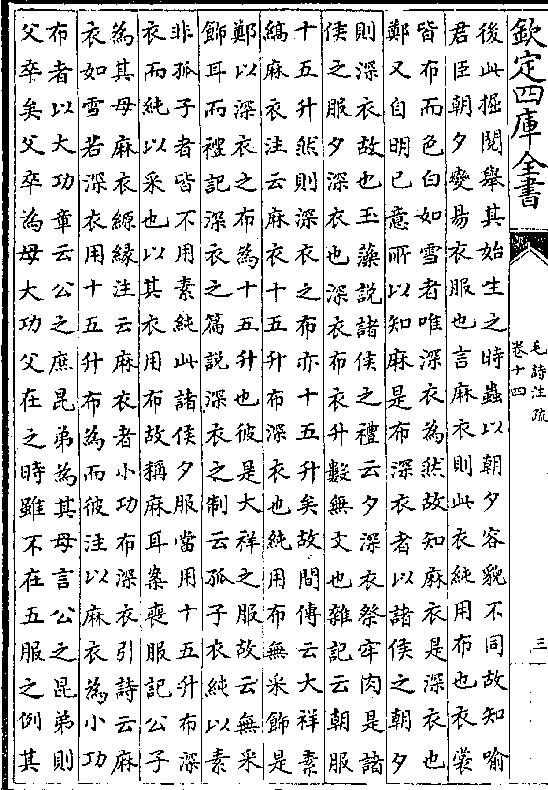 欽定四庫全書
毛詩注疏
卷十四
三
後此掘閱舉其始生之時蟲以朝夕容貌不同故知喻
君臣朝夕變易衣服也言麻衣則此衣純用布也衣裳
皆布而色白如雪者唯深衣為然故知麻衣是深衣也
鄭又自明已意所以知麻是布深衣者以諸侯之朝夕
則深衣故也玉藻說諸侯之禮云夕深衣祭牢肉是諸
侯之服夕深衣也深衣布衣升數無文也雜記云朝服
十五升然則深衣之布亦十五升矣故間傳云大祥素
縞麻衣注云麻衣十五升布深衣也純用布無采飾是
鄭以深衣之布為十五升也彼是大祥之服故云無采
飾耳而禮記深衣之篇說深衣之制云孤子衣純以素
非孤子者皆不用素純此諸侯夕服當用十五升布深
衣而純以采也以其衣用布故稱麻耳案喪服記公子
為其母麻衣縓緣注云麻衣者小功布深衣引詩云麻
衣如雪若深衣用十五升布為而彼注以麻衣為小功
布者以大功章云公之庶昆弟為其母言公之昆弟則
父卒矣父卒為母大功父在之時雖不在五服之例其